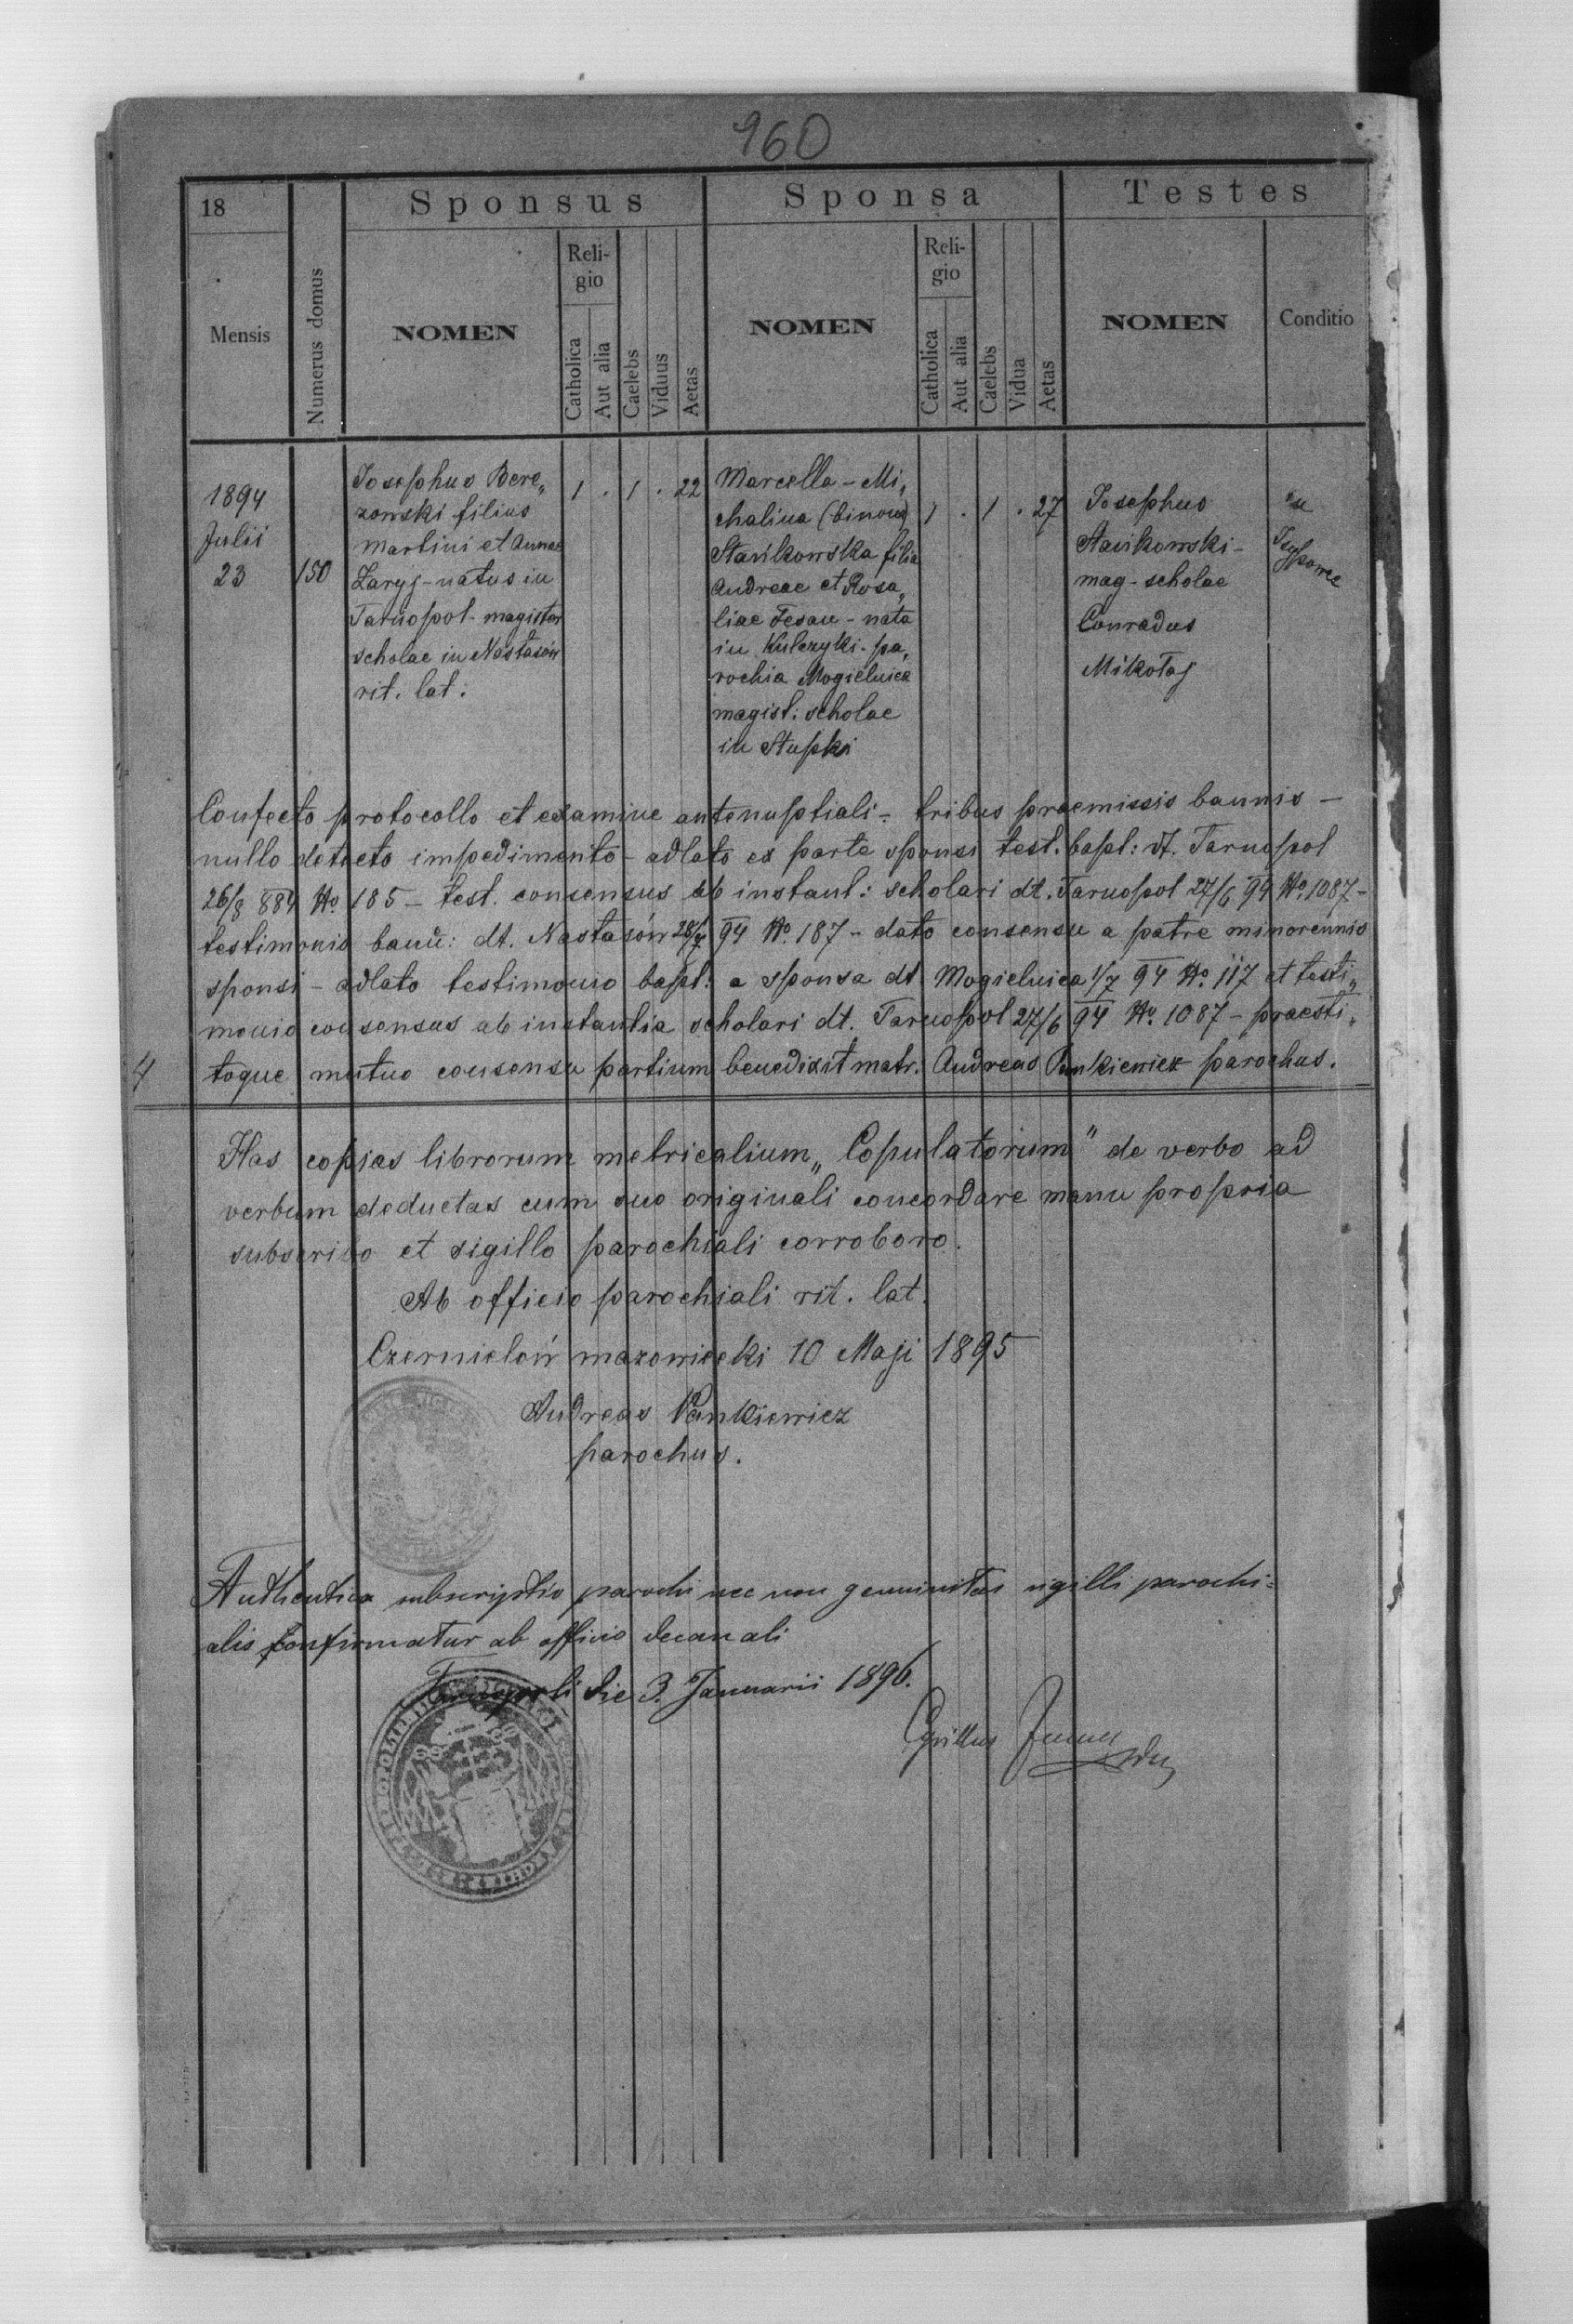 960
18
Sponsus
Sponsa
Testes
Mensis
Numerus domus
NOMEN
Reli-
gio
Catholica
Aut alia
Caelebs
Viduus
Aetas
NOMEN
Reli-
gio
Catholica
Aut alia
Caelebs
Vidua
Aetas
NOMEN
Conditio
1894
Julii
23
150
Josephus Bere„
zowski filius
Martini et Annae
Zaryj - natus in
Tarnopol - magister
scholae in Nastasów
rit. lat:
1 . 1 . 22
Marcella - Mi„
chalina (binom)
Stańkowska filia
Andreae et Rosa„
liae Tesau - nata
in Kulczyki - pa„
rochia Mogielnica
magist: scholae
in Stupki
1 . 1 . 27
Josephus
Stańkowski -
mag - scholae
Conradus
Mikołaj
in
Confecto protocollo et examine antenuptiali - tribus praemissis bannis -
nullo detecto impedimento - adlato ex parte sponsi test. bapt: dt. Tarnopol
26/8 884 No 185 - test. consensus ab instant: scholari dt. Tarnopol 27/6 94 No. 1087 -
testimonio bann: dt. Nastasów 28/7 94 No. 187 - dato consensu a patre minorennis
sponsi - adlato testimonio bapt: a sponsa dt Mogielnica 1/7 94 No. 117 et testi„
monio consensus ab instantia scholari dt. Tarnopol 27/6 94 No. 1087 - praesti„
4 toque mutuo consensu partium benedixit matr. Andreas Pankiewicz parochus.
Has copias librorum metricalium „Copulatorum" de verbo ad
verbum deductas cum suo originali concordare manu propria
subscribo et sigillo parochiali corroboro.
Ab officio parochiali rit. lat.
Czernielów mazowiecki 10 Maji 1895
Andreas Pankiewicz
parochus.
Authentica subscriptio parochi nec non genuinitas sigilli parochi=
alis confirmatur ab officio decanali
Tarnopoli die 3. Januarii 1896.
Cyrillus